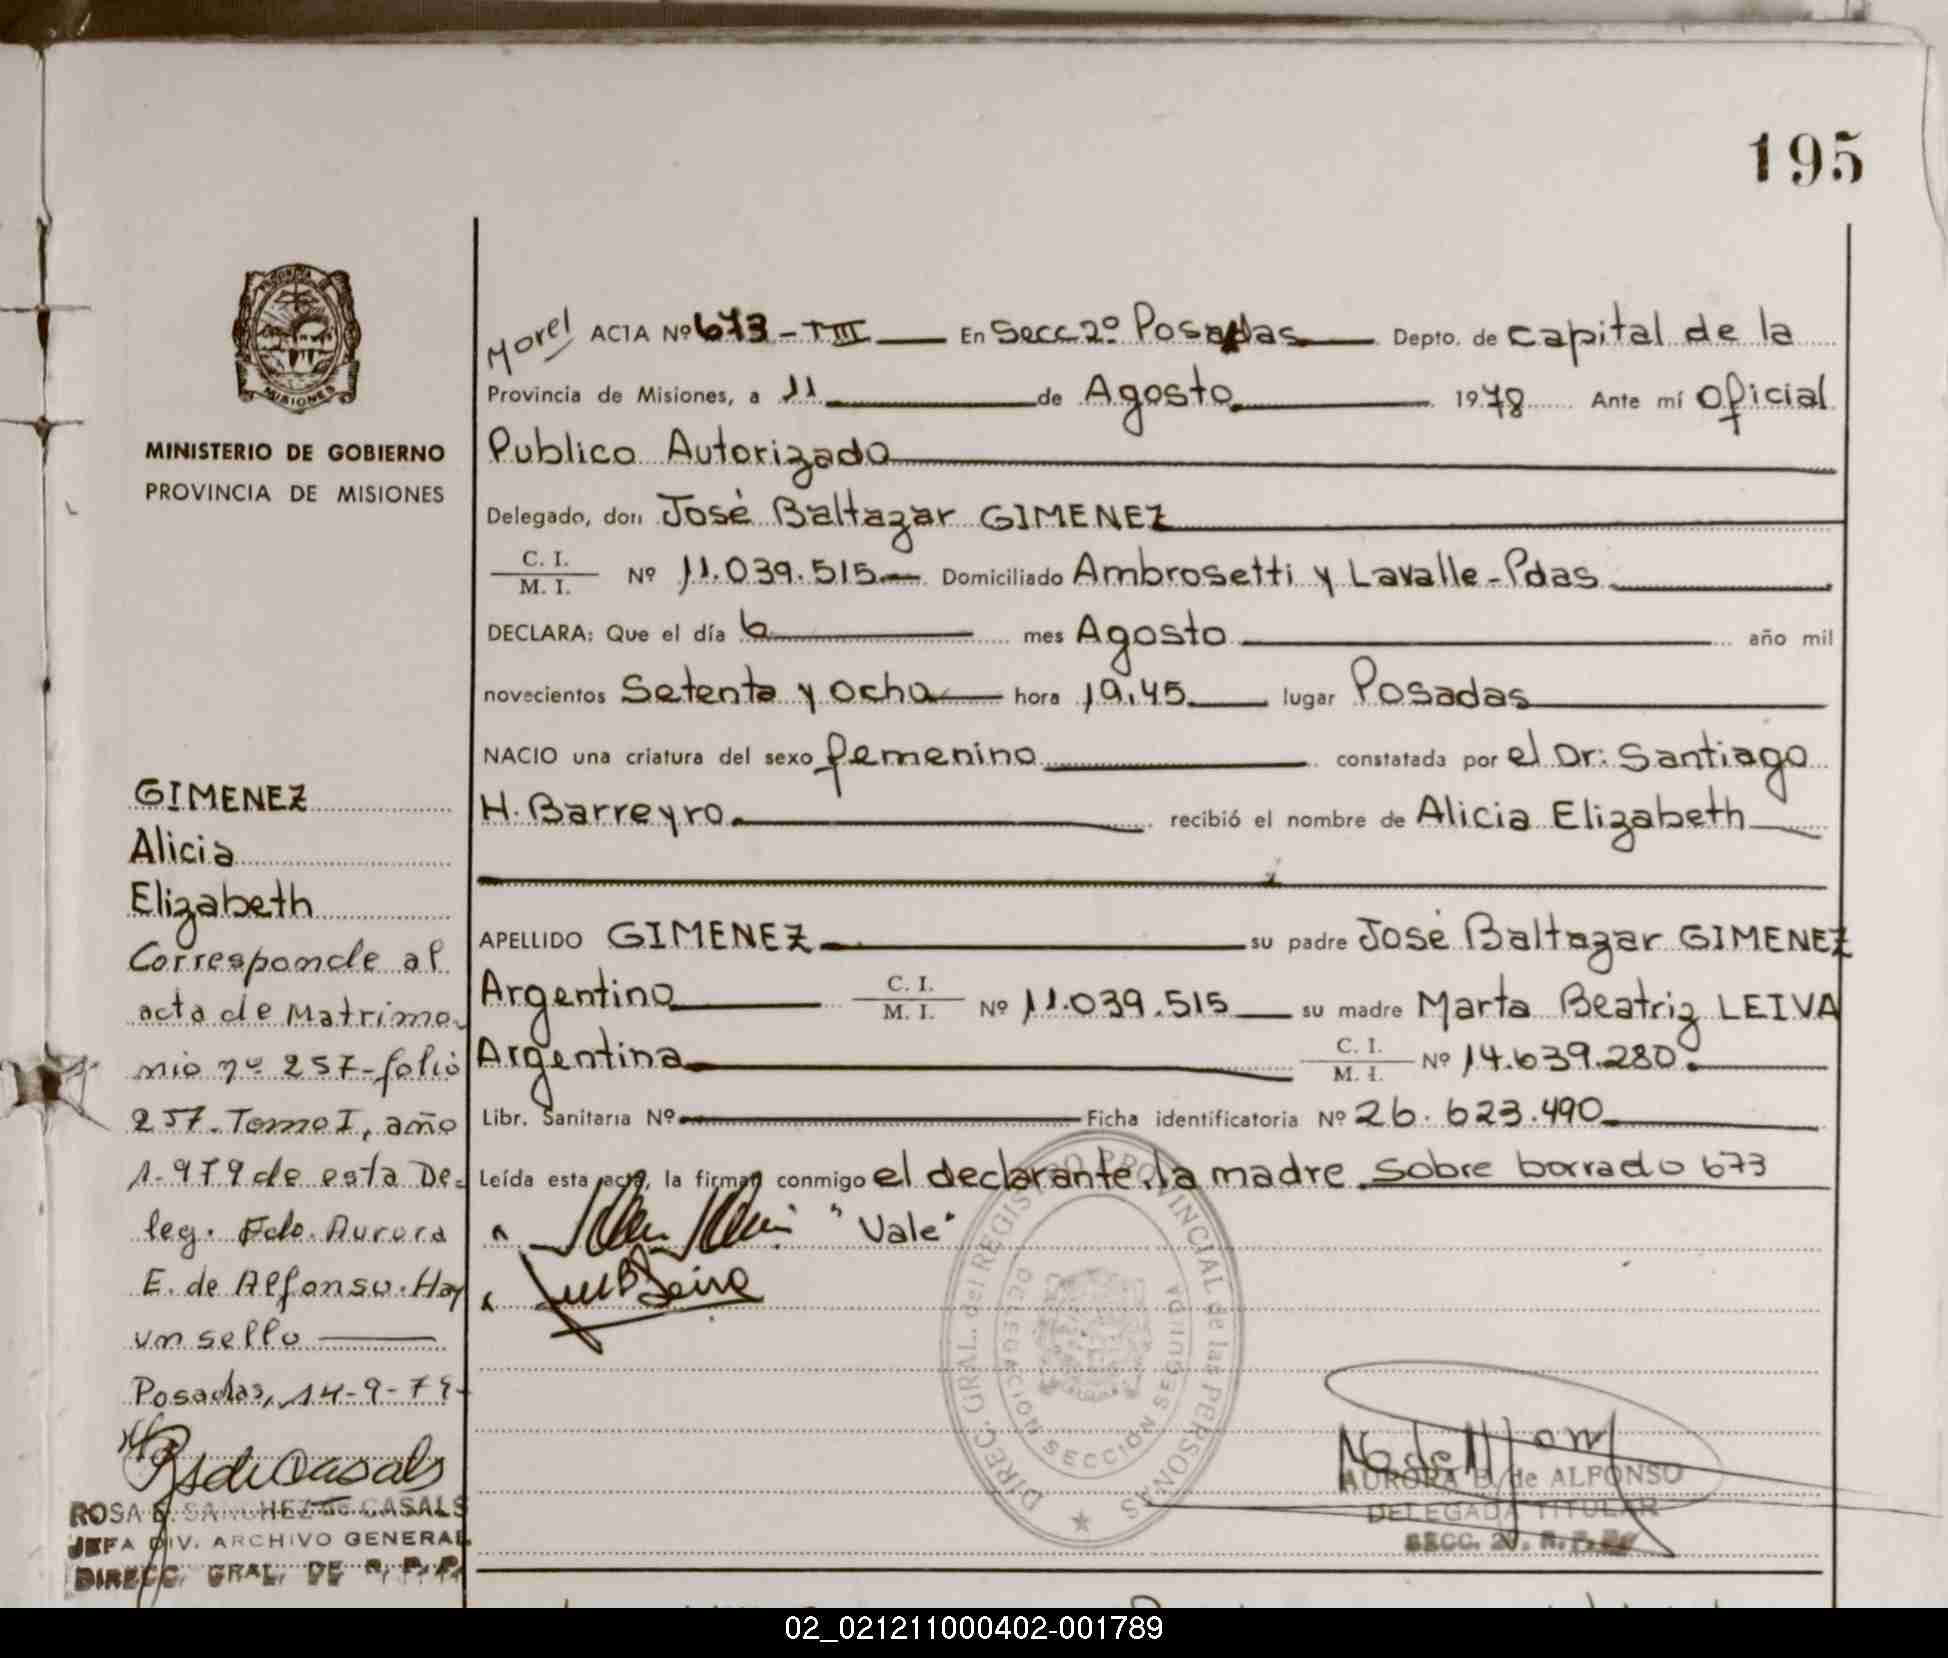 195
PROVINCIA
MISIONES
MINISTERIO DE GOBIERNO
PROVINCIA DE MISIONES
GIMENEZ
Alicia
Elizabeth
Corresponde al
acta de Matrimo-
nio nº 257-folio
257. Tomo I, año
1.979 de esta De-
leg. Fdo. Aurora
E. de Alfonso. Hay
un sello
Posadas, 14-9-79-
ROSA E. SANCHEZ de CASALS
JEFA DIV. ARCHIVO GENERAL
DIRECC. GRAL. DE R. P. P.
Morel ACTA Nº 673-TIII En Secc 2º Posadas Depto. de Capital de la
Provincia de Misiones, a 11 de Agosto 1978 Ante mí Oficial
Publico Autorizado
Delegado, don José Baltazar GIMENEZ
C. I.
M. I. Nº 11.039.515 Domiciliado Ambrosetti y Lavalle-Pdas
DECLARA: Que el día 6 mes Agosto año mil
novecientos Setenta y ocho hora 19.45 lugar Posadas
NACIO una criatura del sexo femenino constatada por el Dr: Santiago
H. Barreyro. recibió el nombre de Alicia Elizabeth
APELLIDO GIMENEZ su padre José Baltazar GIMENEZ
Argentino C. I.
M. I. Nº 11.039.515 su madre Marta Beatriz LEIVA
Argentina C. I.
M. I. Nº 14.639.280.
Libr. Sanitaria Nº Ficha identificatoria Nº 26.623.490
Leída esta acta, la firman conmigo el declarante.la madre. Sobre borrado 673
"Vale"
DIREC. GRAL. del REGISTRO PROVINCIAL de las PERSONAS
DELEGACION SECCION SEGUNDA
AURORA E. de ALFONSO
DELEGADA TITULAR
SECC. 2º. R. P. P.
02_021211000402-001789